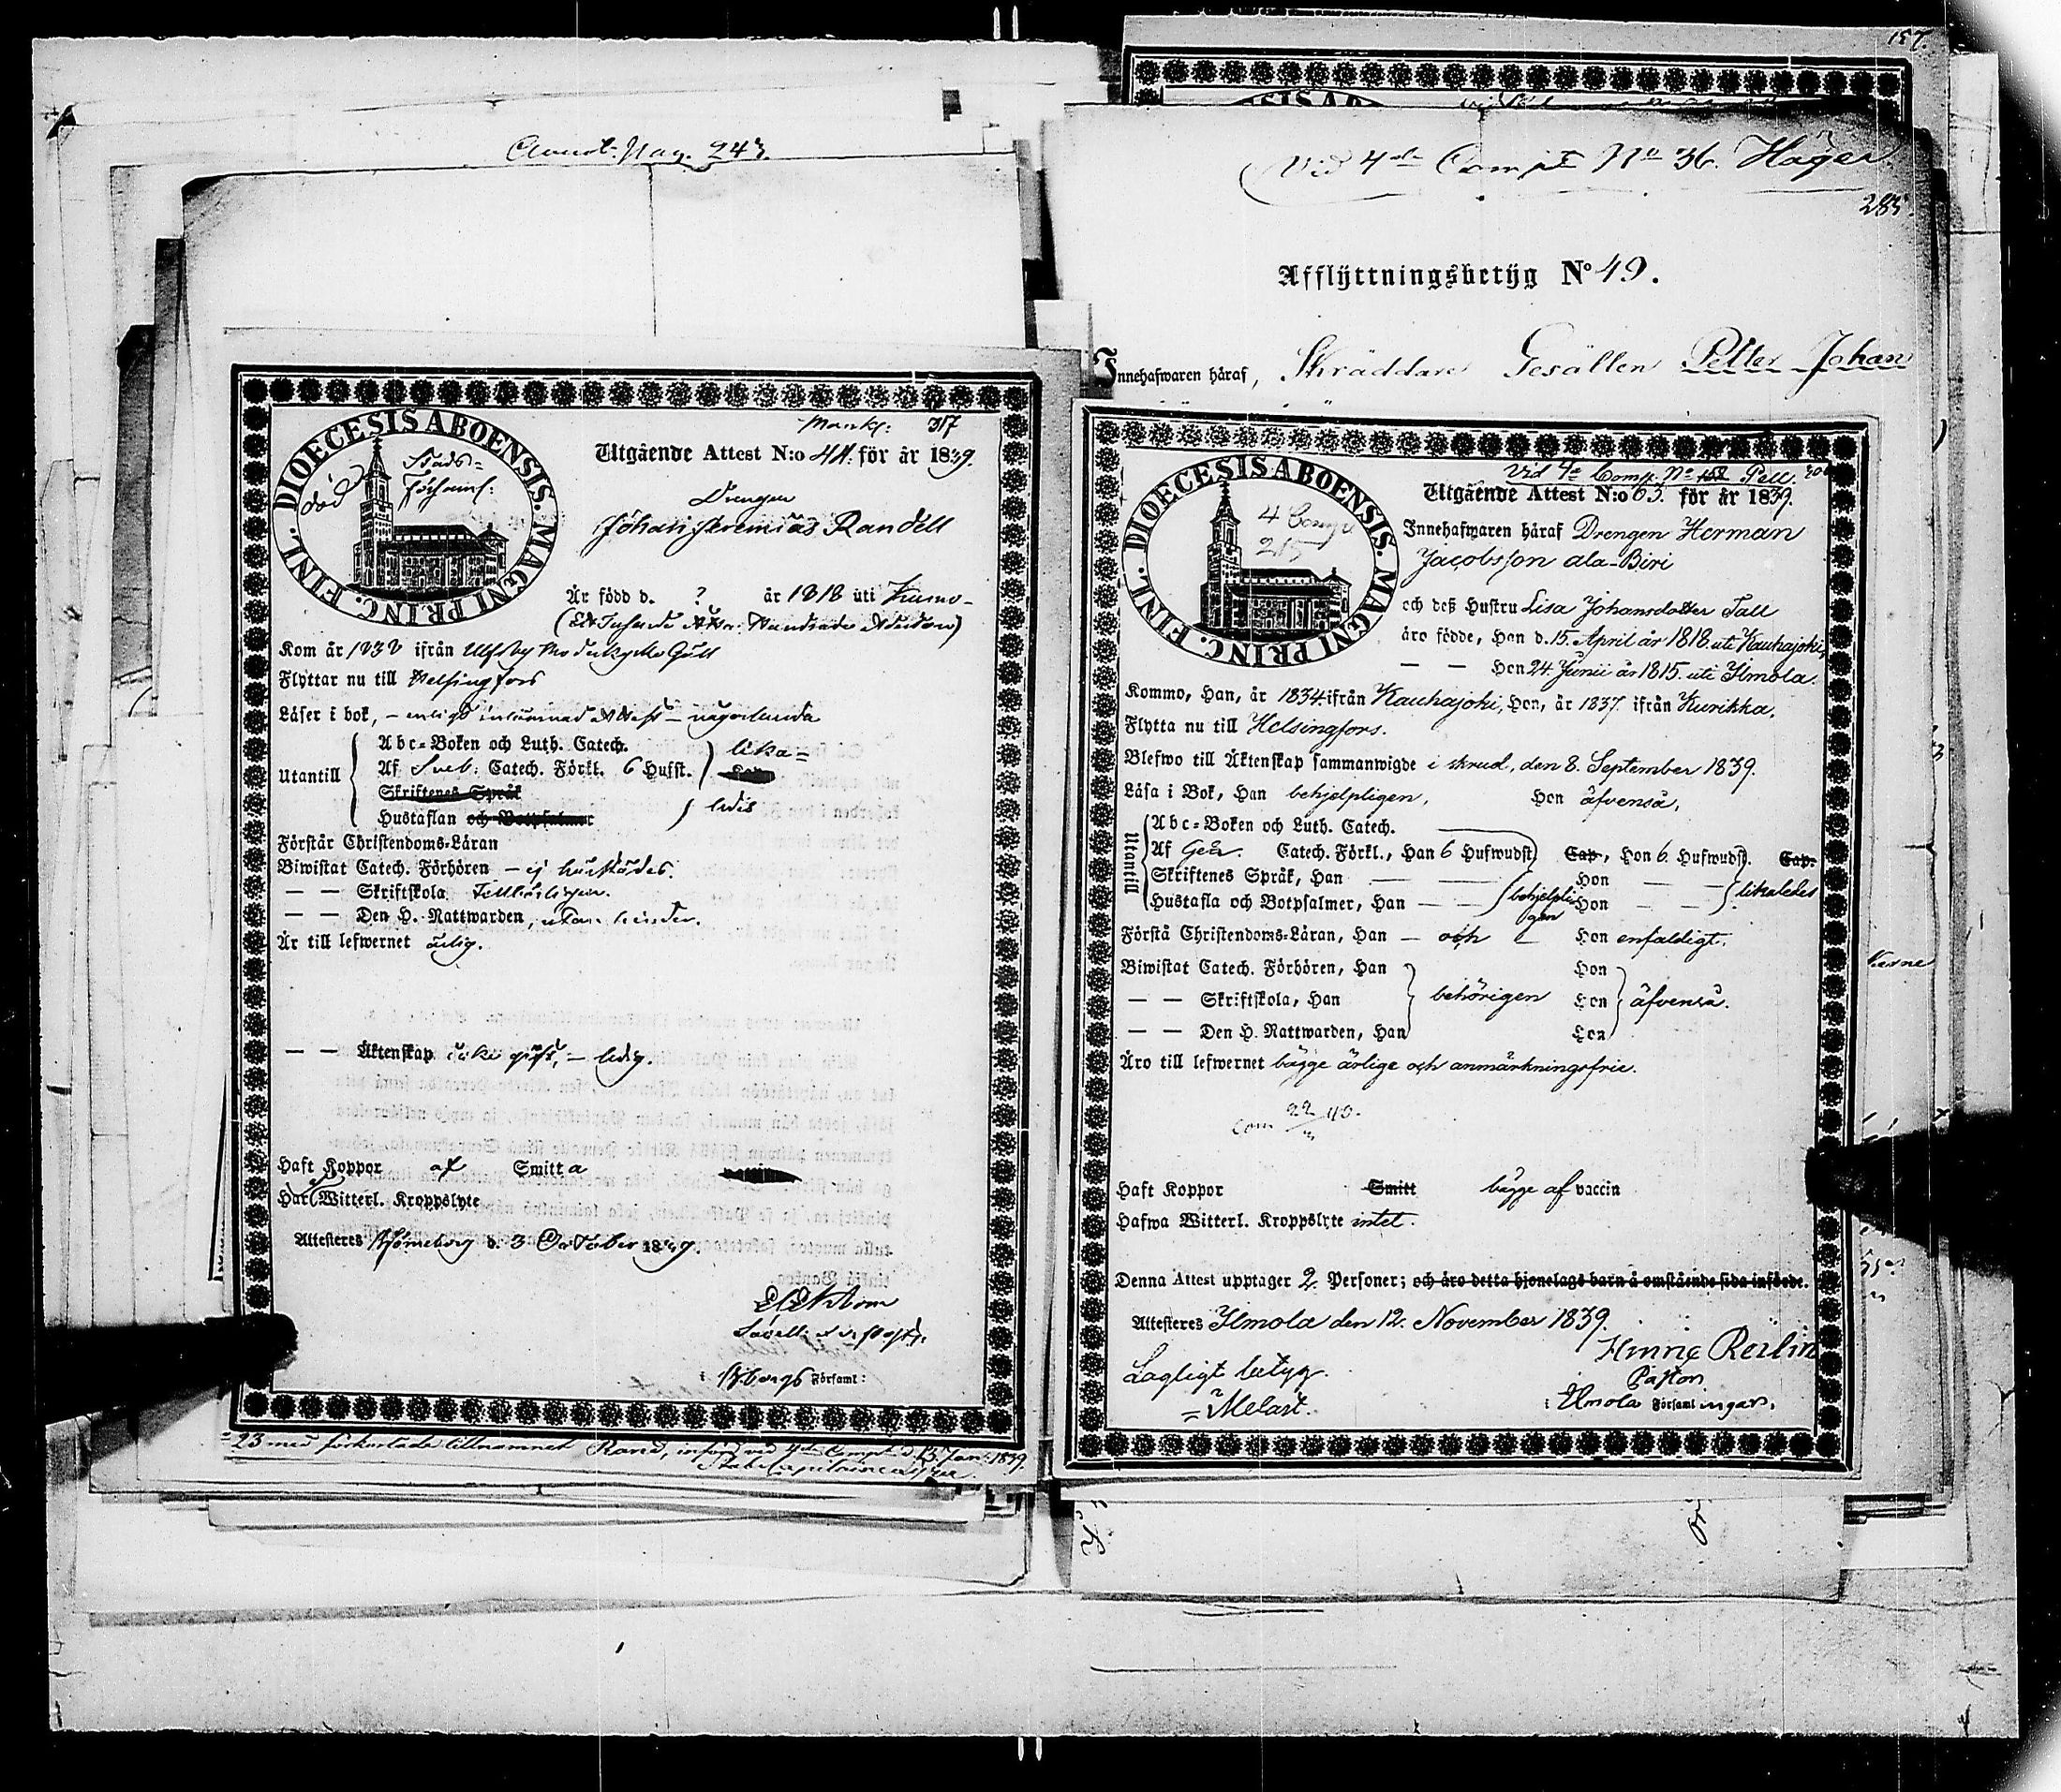 Annot. Pag. 243.
DIOECESIS ABOENSIS. MAGNI PRINC. FINL.
död
Stads-
Församl:
317
Utgående Attest N:o 44. för år 1839.
Drengen
Johan Jeremias Randell
Är född d. ? år 1818 uti Kumo-
Kom år 1838 ifrån Ulfsby
Flyttar nu till Helsingfors
Läser i bok, – enligt inlämnad Attest – någorlunda
Utantill
Abc-Boken och Luth. Catech.
Af Sveb: Catech. Förkl. 6 Hufst.
lika-
Skriftenes Språk
Hustaflan och Botpsalmer
ledes
Förstår Christendoms-Läran
Biwistat Catech. Förhören – ej
— — Skriftskola
— — Den H. Nattwarden, utan hinder.
Är till lefwernet ärlig.
— — Äktenskap icke gift, – ledig.
Haft Koppor af Smitta
Har Witterl. Kroppslyte
Attesteres Björneborg d. 3 October 1839.
i Bjbergs Församl:
23 med förkortade tillnamnet Rand, införd vid 4de Comp. d. 13 Jan. 1839.
157.
Vid 4de Comp. No 36. Häger
283.
Afflyttningsbetyg No 49.
Innehafwaren häraf, Skräddare Gesällen Petter Johan
DIOECESIS ABOENSIS. MAGNI PRINC. FINL.
4 Comp
215
Vid 4e Comp. No Pell.
Utgående Attest N:o 63. för år 1839.
Innehafwaren häraf Drengen Herman
Jacobsson ala-Biri
och deß Hustru Lisa Johansdotter Tall
äro födde, Han d. 15. April år 1818. uti Kauhajoki,
— — Hon 24. Junii år 1815. uti Ilmola.
Kommo, Han, år 1834. ifrån Kauhajoki, Hon, år 1837. ifrån Kurikka.
Flytta nu till Helsingfors.
Blefwo till Äktenskap sammanwigde i skrud, den 8. September 1839.
Läsa i Bok, Han behjelpligen, Hon äfvenså,
Utantill
Abc-Boken och Luth. Catech.
Af Gez. Catech. Förkl., Han 6 Hufwudst. Cap., Hon 6. Hufwudst. Cap.
Skriftenes Språk, Han — — Hon — —
Hustafla och Botpsalmer, Han — — behjelpligen Hon — — likaledes
Förstå Christendoms-Läran, Han — och — Hon enfaldigt.
Biwistat Catech. Förhören, Han Hon
— — Skriftskola, Han behörigen Hon äfvenså.
— — Den H. Nattwarden, Han Hon
Äro till lefwernet bägge ärlige och anmärkningsfrie.
Haft Koppor Smitt bägge af vaccin
Hafwa Witterl. Kroppslyte intet.
Denna Attest upptager 2 Personer; och äro detta hjonelags barn å omstående sida införde.
Attesteres Ilmola den 12. November 1839.
Pastor
i Ilmola Församlingar.
Lagligt betyg.
Melart.